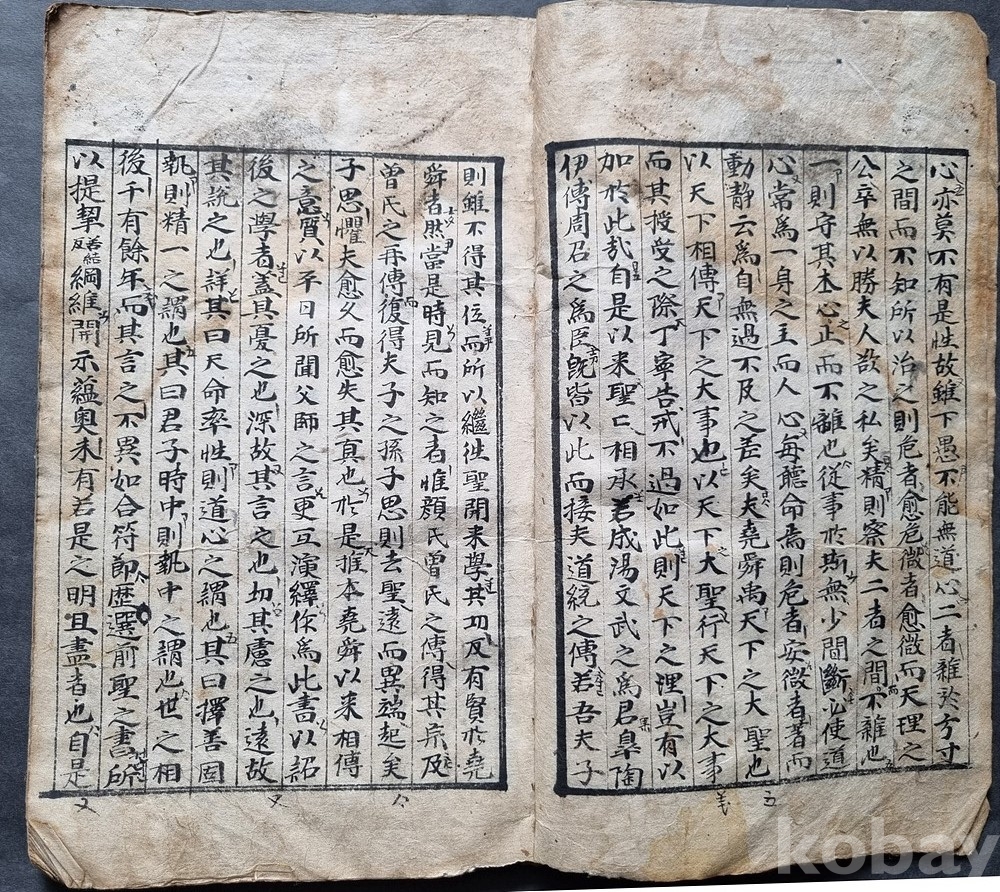 心亦莫不有是性故雖下愚不能無道心二者雜於方寸
之間而不知所以治之則危者愈危微者愈微而天理之
公卒無以勝夫人欲之私矣精則察夫二者之間而不雜也
一則守其本心之正而不離也從事於斯無少間斷必使道
心常爲一身之主而人心每聽命焉則危者安微者著而
動靜云爲自無過不及之差矣夫堯舜禹天下之大聖也
以天下相傳天下之大事也以天下之大聖行天下之大事
而其授受之際丁寧告戒不過如此則天下之理豈有以
加於此哉自是以来聖〻相承若成湯文武之爲君皐陶
伊傅周召之爲臣旣皆以此而接夫道統之傳若吾夫子
則雖不得其位而所以繼往聖開来學其功反有賢於堯
舜者然當是時見而知之者惟顔氏曾氏之傳得其宗及
曾氏之再傳而復得夫子之孫子思則去聖遠而異端起矣
子思懼夫愈久而愈失其真也於是推本堯舜以来相傳
之意質以平日所聞父師之言更互演繹作爲此書以詔
後之學者蓋其憂之也深故其言之也切其慮之也遠故
其說之也詳其曰天命率性則道心之謂也其曰擇善固
執則精一之謂也其曰君子時中則執中之謂也世之相
後千有餘年而其言之不異如合符節歷選前聖之書所
以提挈苦結反綱維開示蘊奧未有若是之明且盡者也自是
kobay